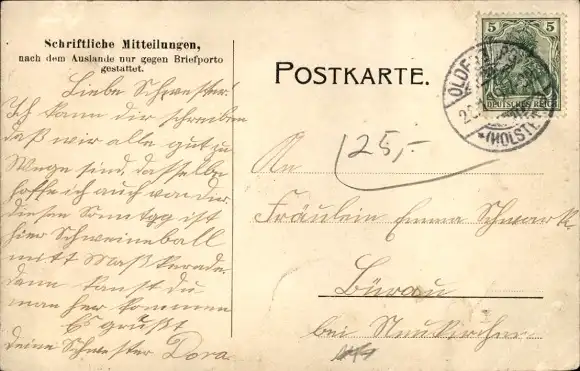 Schriftliche Mitteilungen,
nach dem Auslande nur gegen Briefporto
gestattet.
Liebe Schwester!
Ich kann dir schreiben
daß wir alle gut zu
Wege sind, dasselbe
hoffe ich auch von dir.
diesen Sonntag ist
hier Schweineball
mitt Maßkerade.
dann kanst du
man her kommen
Es grüßt
deine Schwester Dora
POSTKARTE.
5 5
DEUTSCHES REICH
(HOLSTE
125,-
An
Fräulein Emma Schwark
Bürau
bei Neukirchen